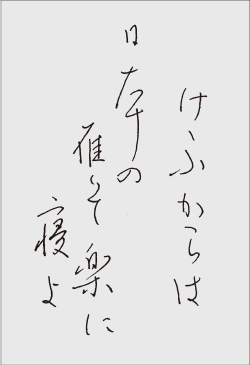 けふからは
日本の
雁ぞ楽に
寝よ